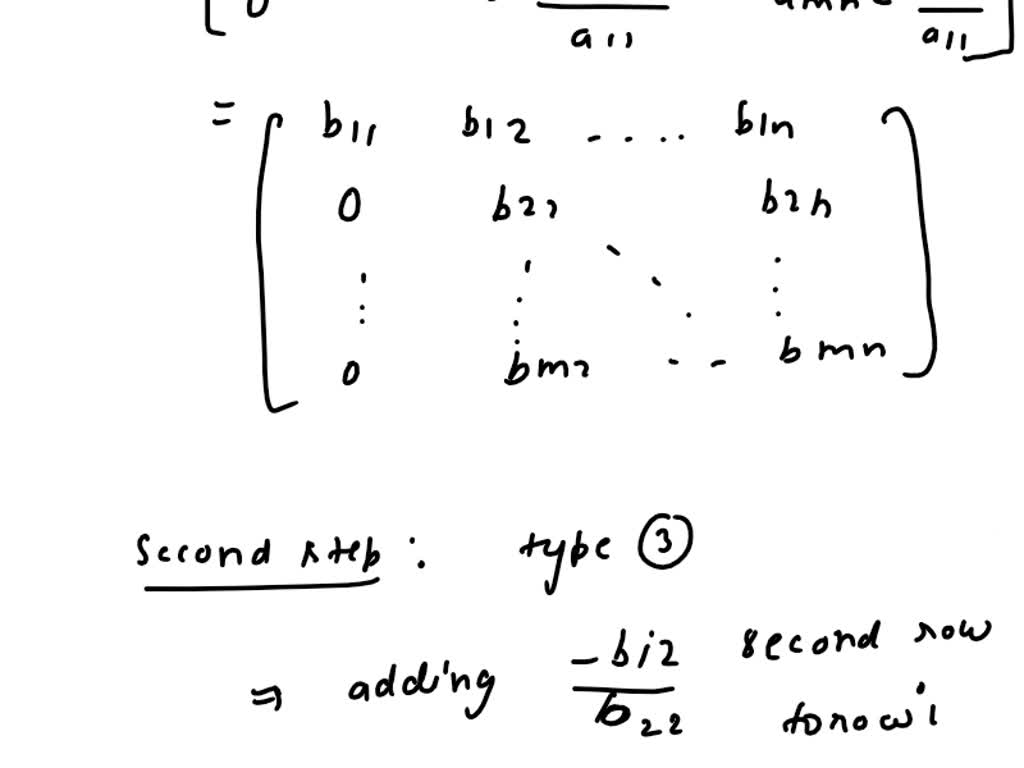 0 amn-
a11 a11
= b11 b12 .... b1n
0 b22 b2n
0 bm2 .. bmn
Second step: type ③
⇒ adding -bi2 second row
b22 to row i